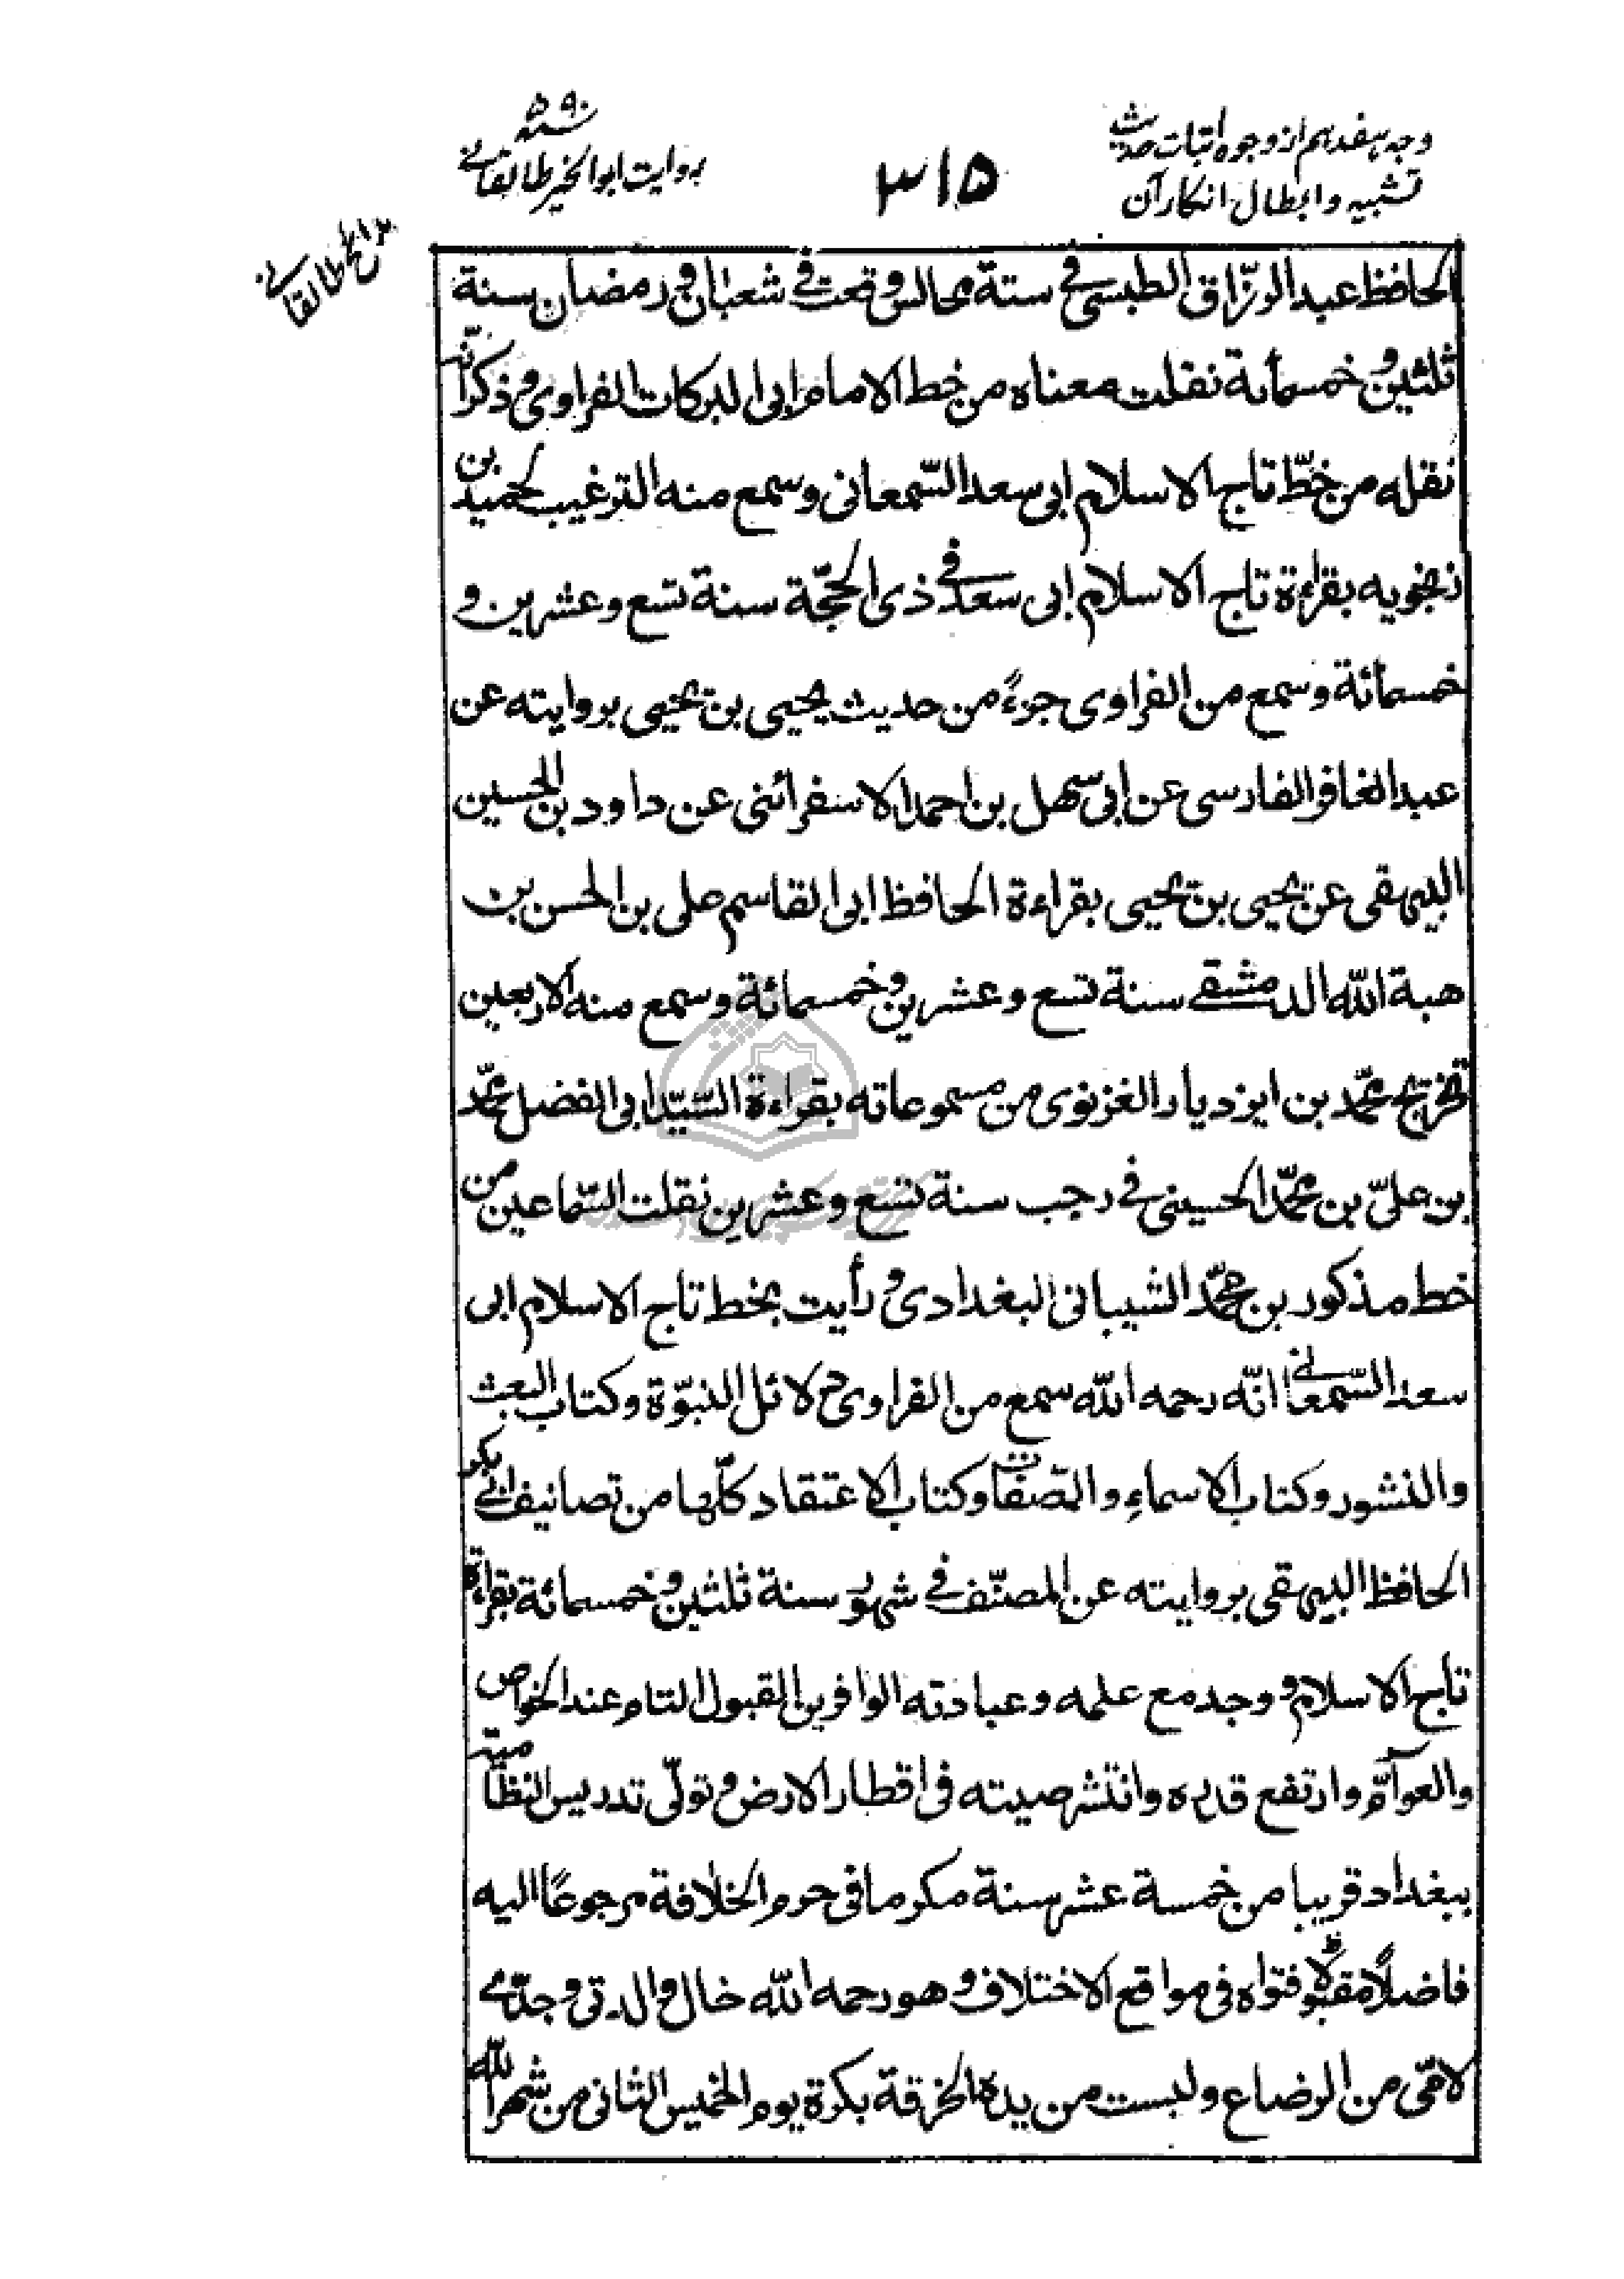 وجہ ہفدہم از وجوہ اثبات حدیث
تشبیہ و ابطال انکار آن
۳۱۵
سنہ ۵۹۰
روایت ابوالخیر طالقانی
الحافظ عبدالرزّاق الطبسی فی ستة مجالس وقعت فی شعبان و رمضان سنة
ثلثین و خمسمأئة نقلت معناه من خط الامام ابی البرکات الفراوی و ذکر انّه
نقله من خطّ تاج الاسلام ابی سعد السّمعانی و سمع منه الترغیب لحمید بن
زنجویه بقراءة تاج الاسلام ابی سعد فی ذی الحجّة سنة تسع و عشرین و
خمسمائة و سمع من الفراوی جزءً من حدیث یحیی بن یحیی بروایته عن
عبد الغافر الفارسی عن ابی سهل بن احمد الاسفرائنی عن داود بن الحسین
البیهقی عن یحیی بن یحیی بقراءة الحافظ ابی القاسم علی بن الحسن بن
هبة اللّه الدمشقی سنة تسع و عشرین و خمسمائة و سمع منه الاربعین
تخریج محمّد بن ایزدیار الغزنوی من مسموعاته بقراءة السّیّد ابی الفضل محمّد
بن علیّ بن محمّد الحسینی فی رجب سنة تسع و عشرین نقلت السّماعین من
خط مذکور بن محمّد الشیبانی البغدادی و رأیت بخط تاج الاسلام ابی
سعد السّمعانی انّه رحمه اللّه سمع من الفراوی دلائل النبوّة و کتاب البعث
والنشور و کتاب الاسماءِ والصّفات و کتاب الاعتقاد کلّها من تصانیف ابی بکر
الحافظ البیهقی بروایته عن المصنّف فی شهور سنة ثلثین و خمسمائة بقراءة
تاج الاسلام و وجد مع علمه و عبادته الوافرین القبول التام عند الخواص
والعوآمّ و ارتفع قدره و انتشر صیته فی اقطار الارض و تولّی تدریس النظّامیّة
ببغداد قریبا من خمسة عشر سنة مکرما فی حرم الخلافة مرجوعًا الیه
فاضلاً مقبولا فتواه فی مواقع الاختلاف و هو رحمه اللّه خال والدتی و جدّی
لامّی من الرضاع و لبست من یده الخرقة بکرة یوم الخمیس الثانی من شهر اللّه